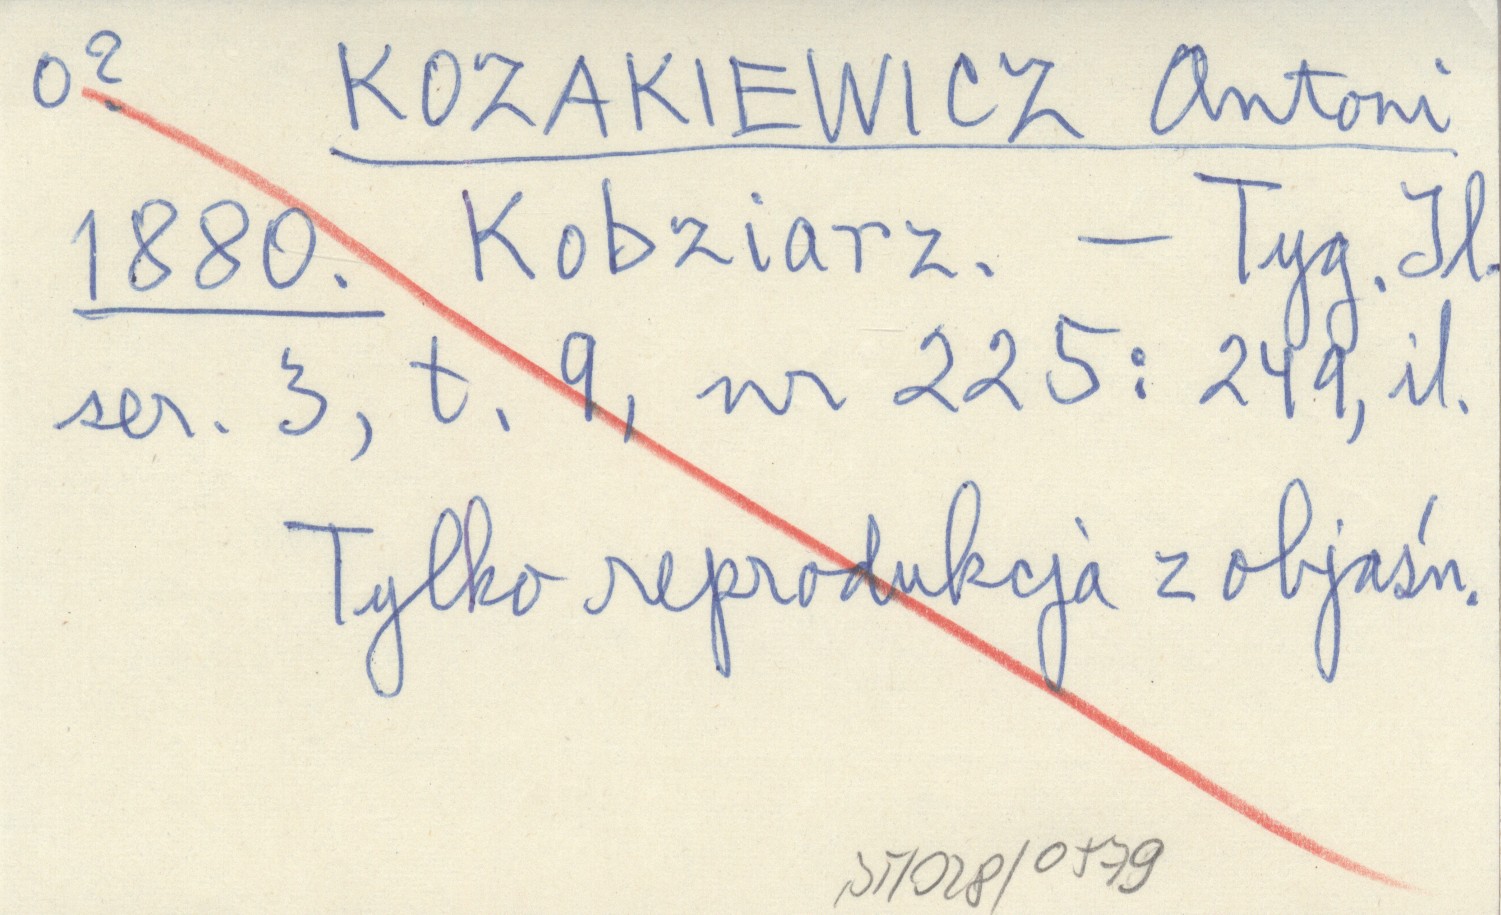 0?
KOZAKIEWICZ Antoni
1880. Kobziarz. — Tyg. Il.
ser. 3, t. 9, nr 225: 249, il.
Tylko reprodukcja z objaśn.